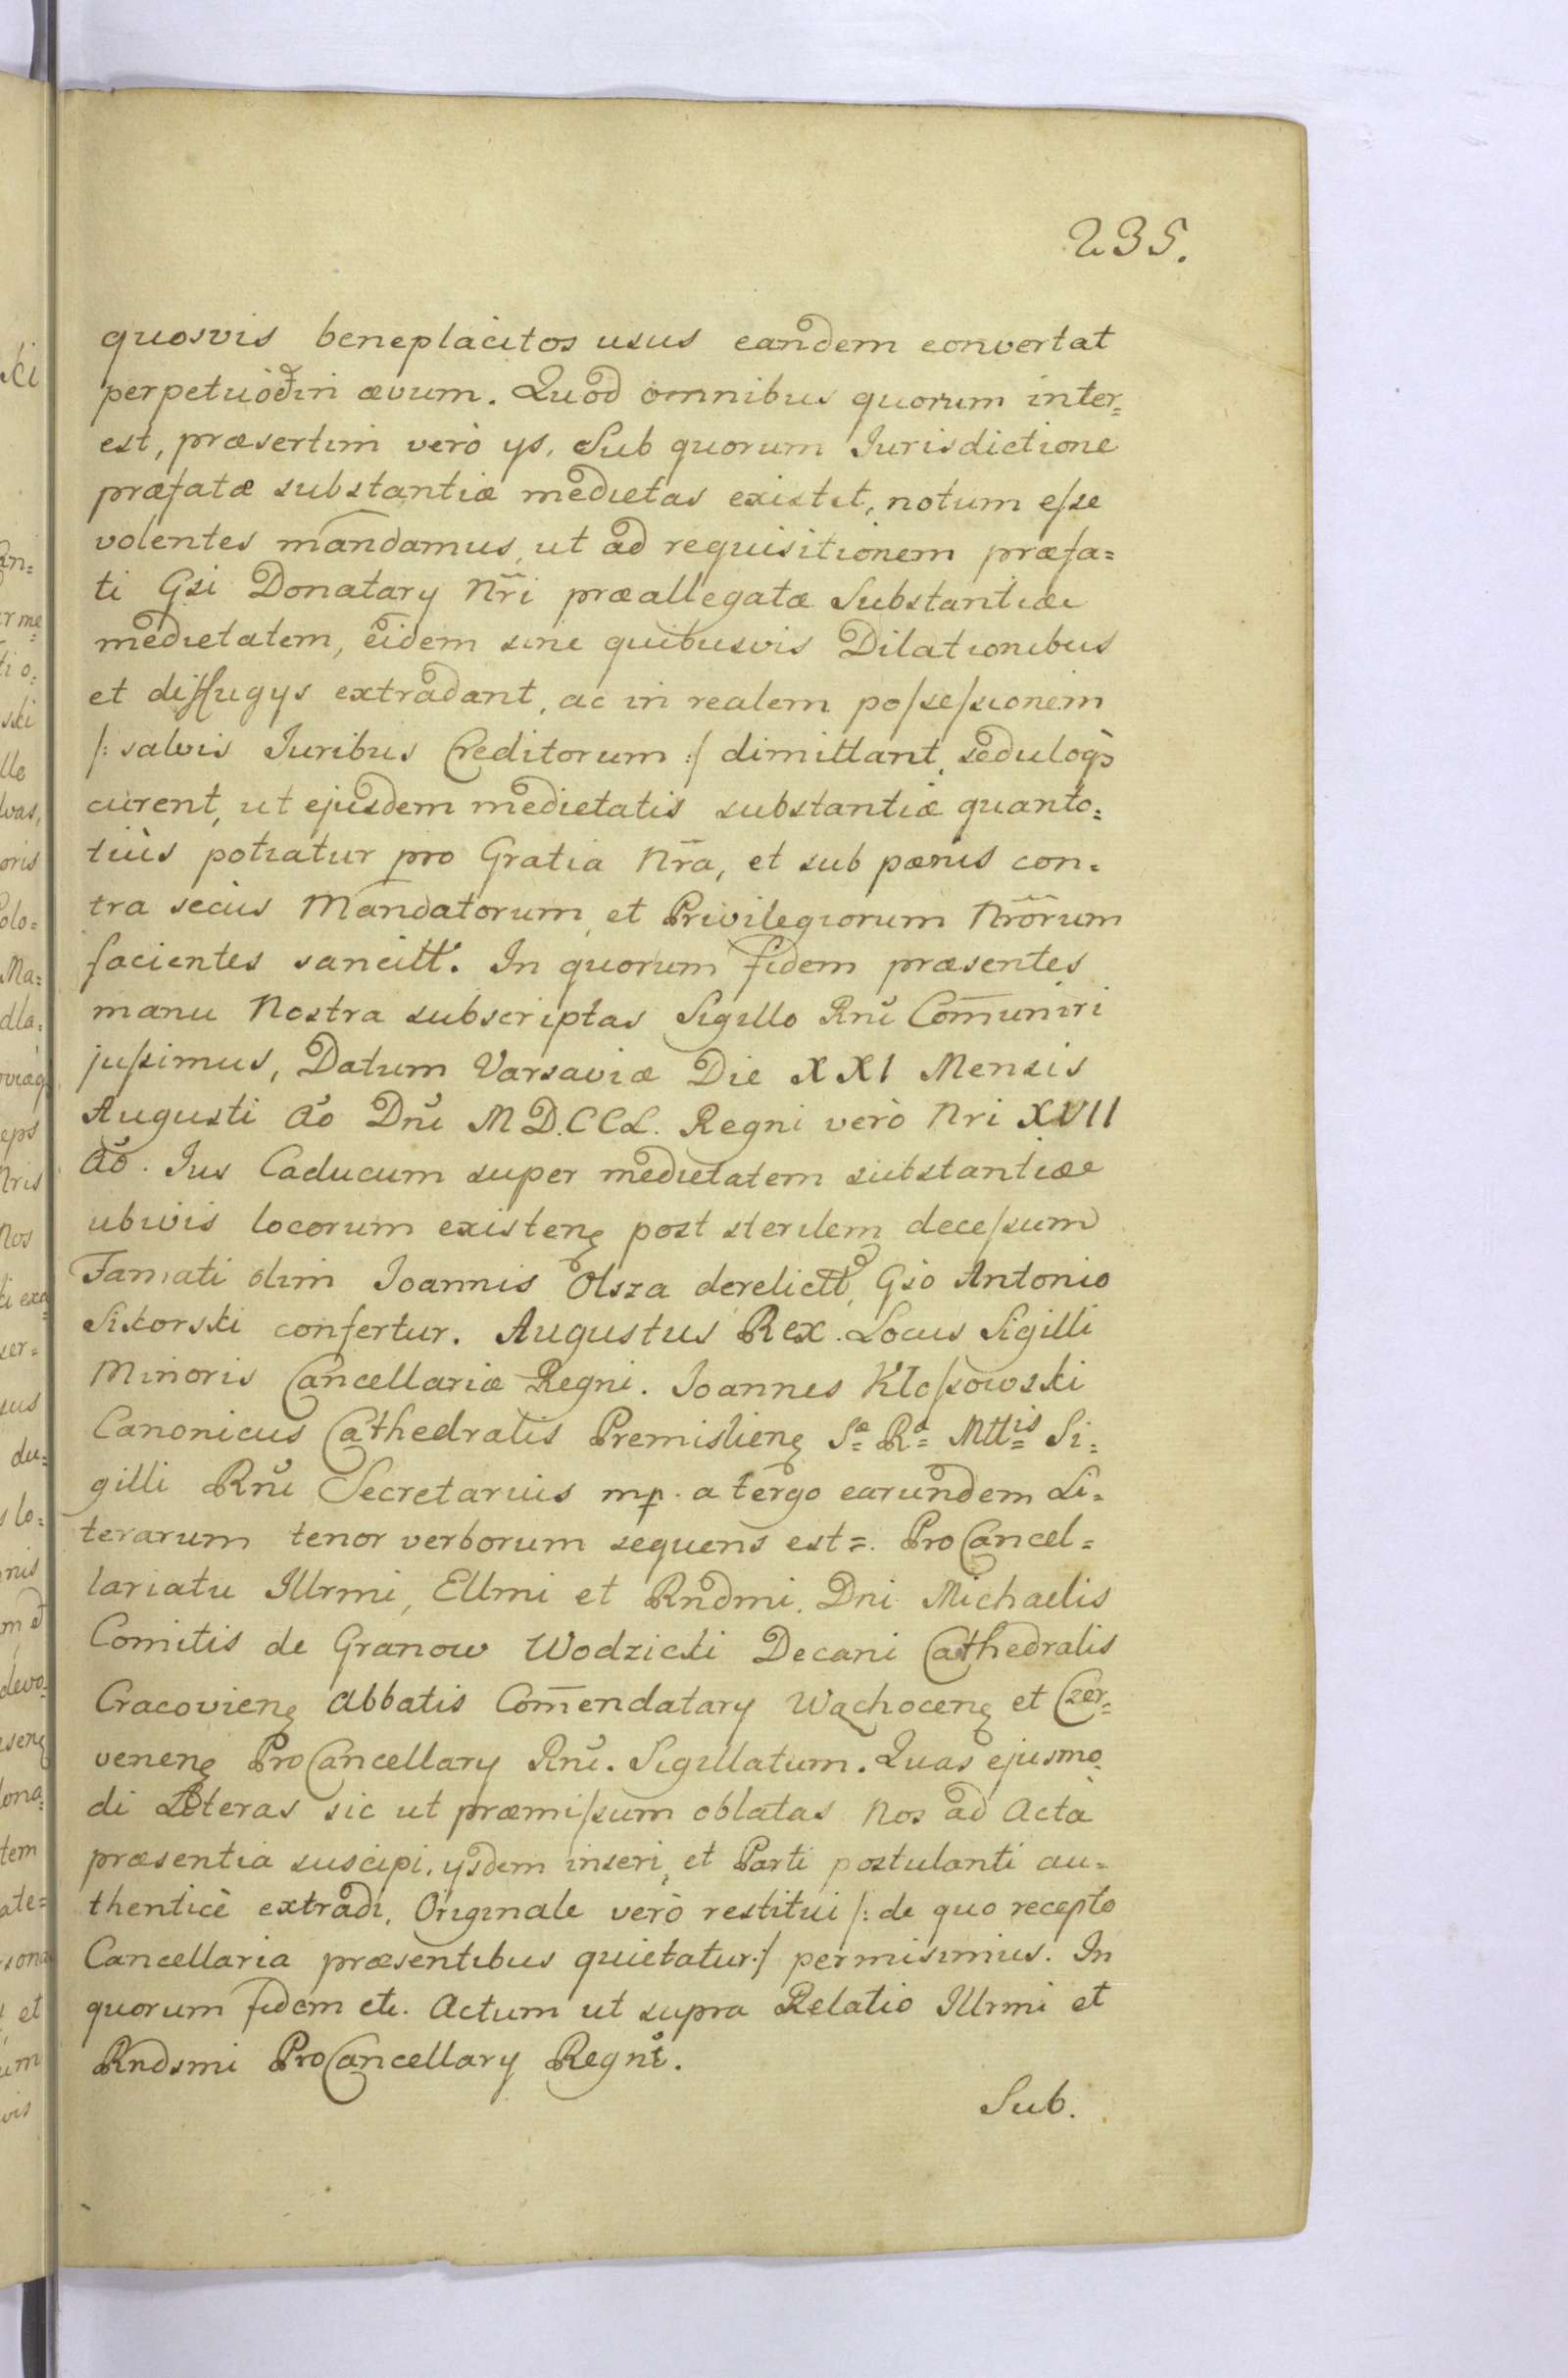 235.
quosvis beneplacitos usus eandem convertat
perpetuò in ævum. Quod omnibus quorum inter=
est, præsertim verò ys, Sub quorum Jurisdictione
præfatæ substantiæ medietas existit, notum eſse
volentes mandamus, ut ad requisitionem præfa=
ti Gsi Donatary Nr̃i præallegatæ Substantiæ
medietatem, eidem sine quibusvis Dilationibus
et diffugys extradant, ac in realem poſseſsionem
/: salvis Juribus Creditorum :/ dimittant, seduloq̀3
curent, ut ejusdem medietatis substantiæ quanto=
tiùs potiatur pro Gratia Nr̃a, et sub pœnis con=
tra secùs Mandatorum, et Privilegiorum Nr̃orum
facientes sancitt. In quorum fidem præsentes
manu Nostra subscriptas Sigillo Rnĩ Com̄uniri
juſsimus, Datum Varsaviæ Die XXI Mensis
Augusti Aõ Dnĩ MD.CCL. Regni verò Nri XVII
Aõ. Jus Caducum super medietatem substantiæ
ubivis locorum existenę post sterilem deceſsum
Famati olim Joannis Olsza derelictt, Gso Antonio
Sikorski confertur. Augustus Rex. Locus Sigilli
Minoris Cancellariæ Regni. Joannes Kloſsowski
Canonicus Cathedralis Premislienę Sæ Ræ Mttis Si=
gilli Rnĩ Secretarius mp. a tergo earundem Li=
terarum tenor verborum sequens est=. ProCancel=
lariatu Illrmi, Ellmi et Rndmi. Dni Michaelis
Comitis de Granow Wodzicki Decani Cathedralis
Cracovienę Abbatis Com̄endatary Wąchocenę et Czer=
venenę ProCancellary Rnĩ. Sigillatum. Quas ejusmo=
di Literas sic ut præmiſsum oblatas Nos ad Acta
præsentia suscipi, ysdem inseri, et Parti postulanti au=
thenticè extradi, Originale verò restitui /: de quo recepto
Cancellaria præsentibus quietatur :/ permisimus. In
quorum fidem etc. Actum ut supra Relatio Illrmi et
Rndsmi ProCancellary Regni.
Sub.